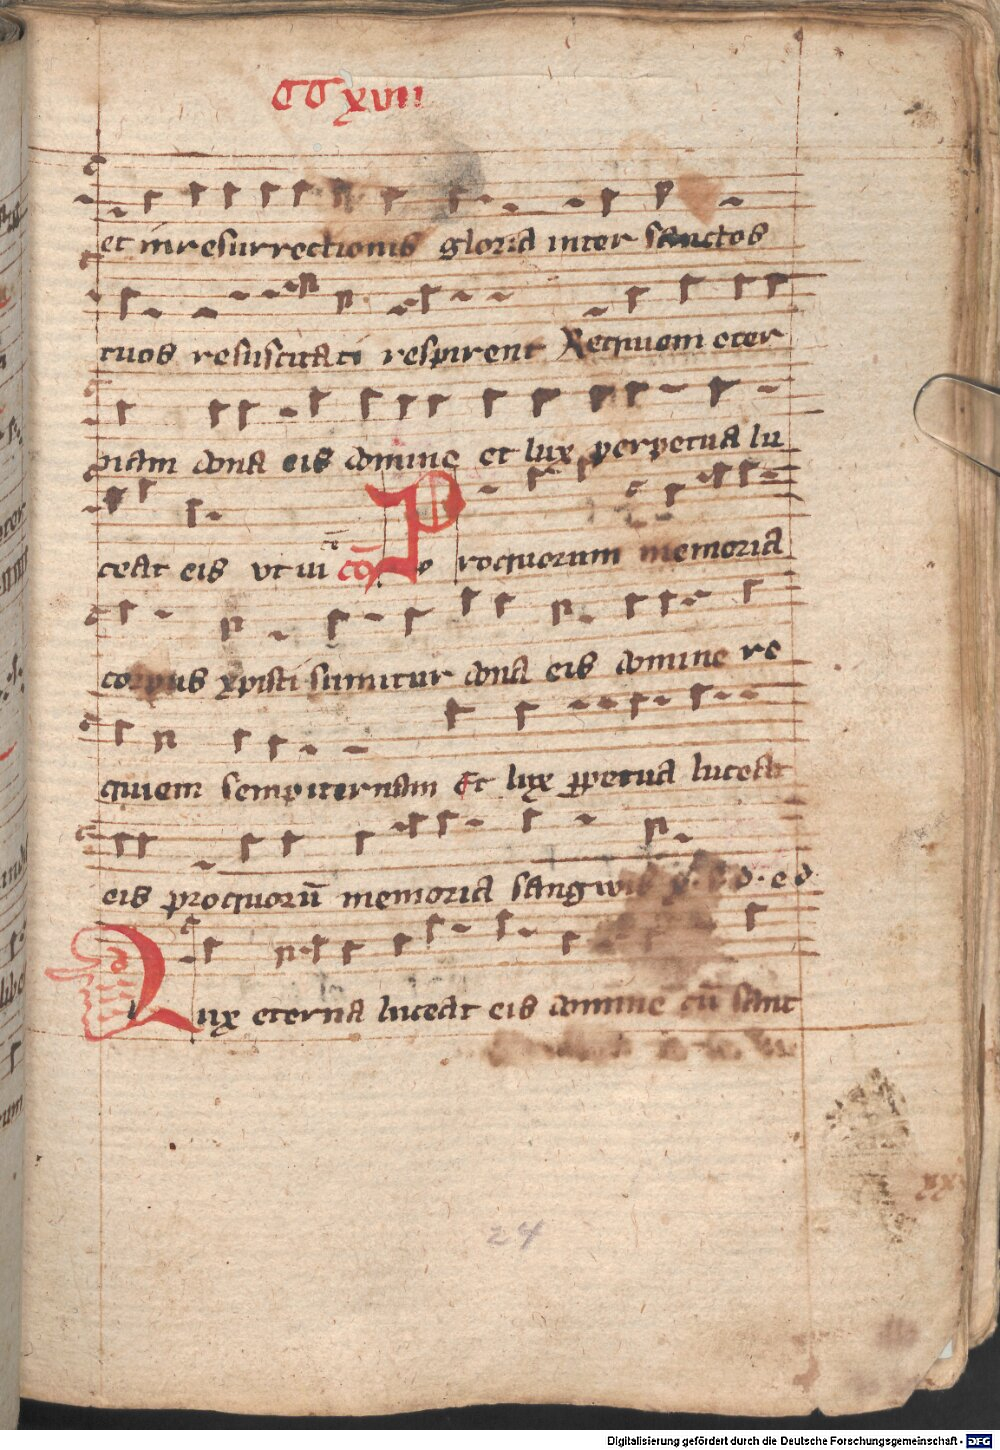 CCxvii
et in resurrectionis gloria inter sanctos
tuos resuscitati respirent Requiem eter
nam dona eis domine et lux perpetua lu
ceat eis vt in co Pro quorum memoria
corpus xpisti sumitur dona eis domine re
quiem sempiternam Et lux ppetua luceat
eis pro quorū memoria sangwis
Lux eterna luceat eis domine cū sanc
24
Digitalisierung gefördert durch die Deutsche Forschungsgemeinschaft - DFG